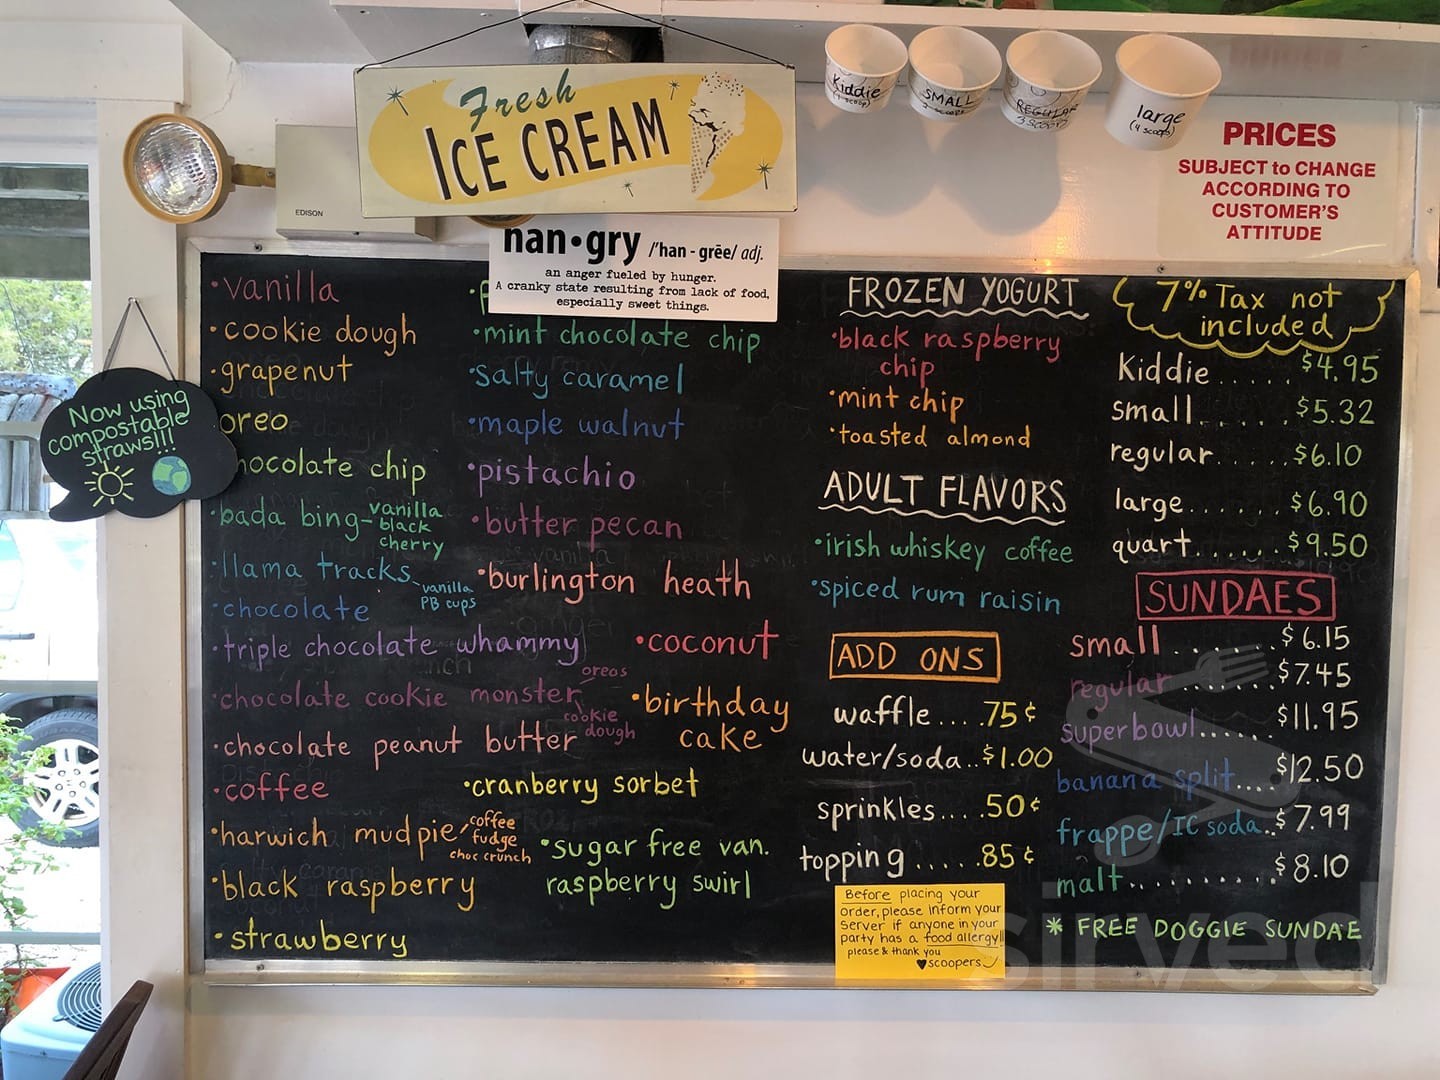 Fresh
ICE CREAM
Kiddie
(1 scoop)
SMALL
2 scoops
REGULAR
3 SCOOPS
large
(4 scoops)
PRICES
SUBJECT to CHANGE
ACCORDING TO
CUSTOMER'S
ATTITUDE
EDISON
han•gry /'han - grēe/ adj.
an anger fueled by hunger.
A cranky state resulting from lack of food,
especially sweet things.
Now using
compostable
straws!!!
•vanilla
•cookie dough
•grapenut
oreo
hocolate chip
•bada bing-vanilla
black
cherry
•llama tracks-vanilla
PB cups
•chocolate
•triple chocolate whammy
•chocolate cookie monster oreos
cookie
dough
•chocolate peanut butter
•coffee
•harwich mud pie-coffee
fudge
choc crunch
•black raspberry
•strawberry
•mint chocolate chip
•salty caramel
•maple walnut
•pistachio
•butter pecan
•burlington heath
•coconut
•birthday
cake
•cranberry sorbet
•sugar free van.
raspberry swirl
FROZEN YOGURT
•black raspberry
chip
•mint chip
•toasted almond
ADULT FLAVORS
•irish whiskey coffee
•spiced rum raisin
ADD ONS
waffle....75¢
water/soda..$1.00
sprinkles....50¢
topping.....85¢
Before placing your
order, please inform your
server if anyone in your
party has a food allergy!!
please & thank you
♥scoopers
7% Tax not
included
Kiddie..... $4.95
small....... $5.32
regular......$6.10
large....... $6.90
quart...... $9.50
SUNDAES
small....... $6.15
regular....... $7.45
superbowl...... $11.95
banana split.... $12.50
frappe/IC soda..$7.99
malt......... $8.10
* FREE DOGGIE SUNDAE
sirved